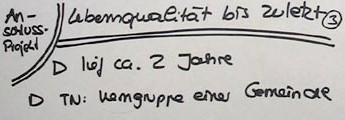 An-
schluss-
Projekt
Lebensqualität bis zuletzt ③
▷ lief ca. 2 Jahre
▷ TN: Kerngruppe einer Gemeinde